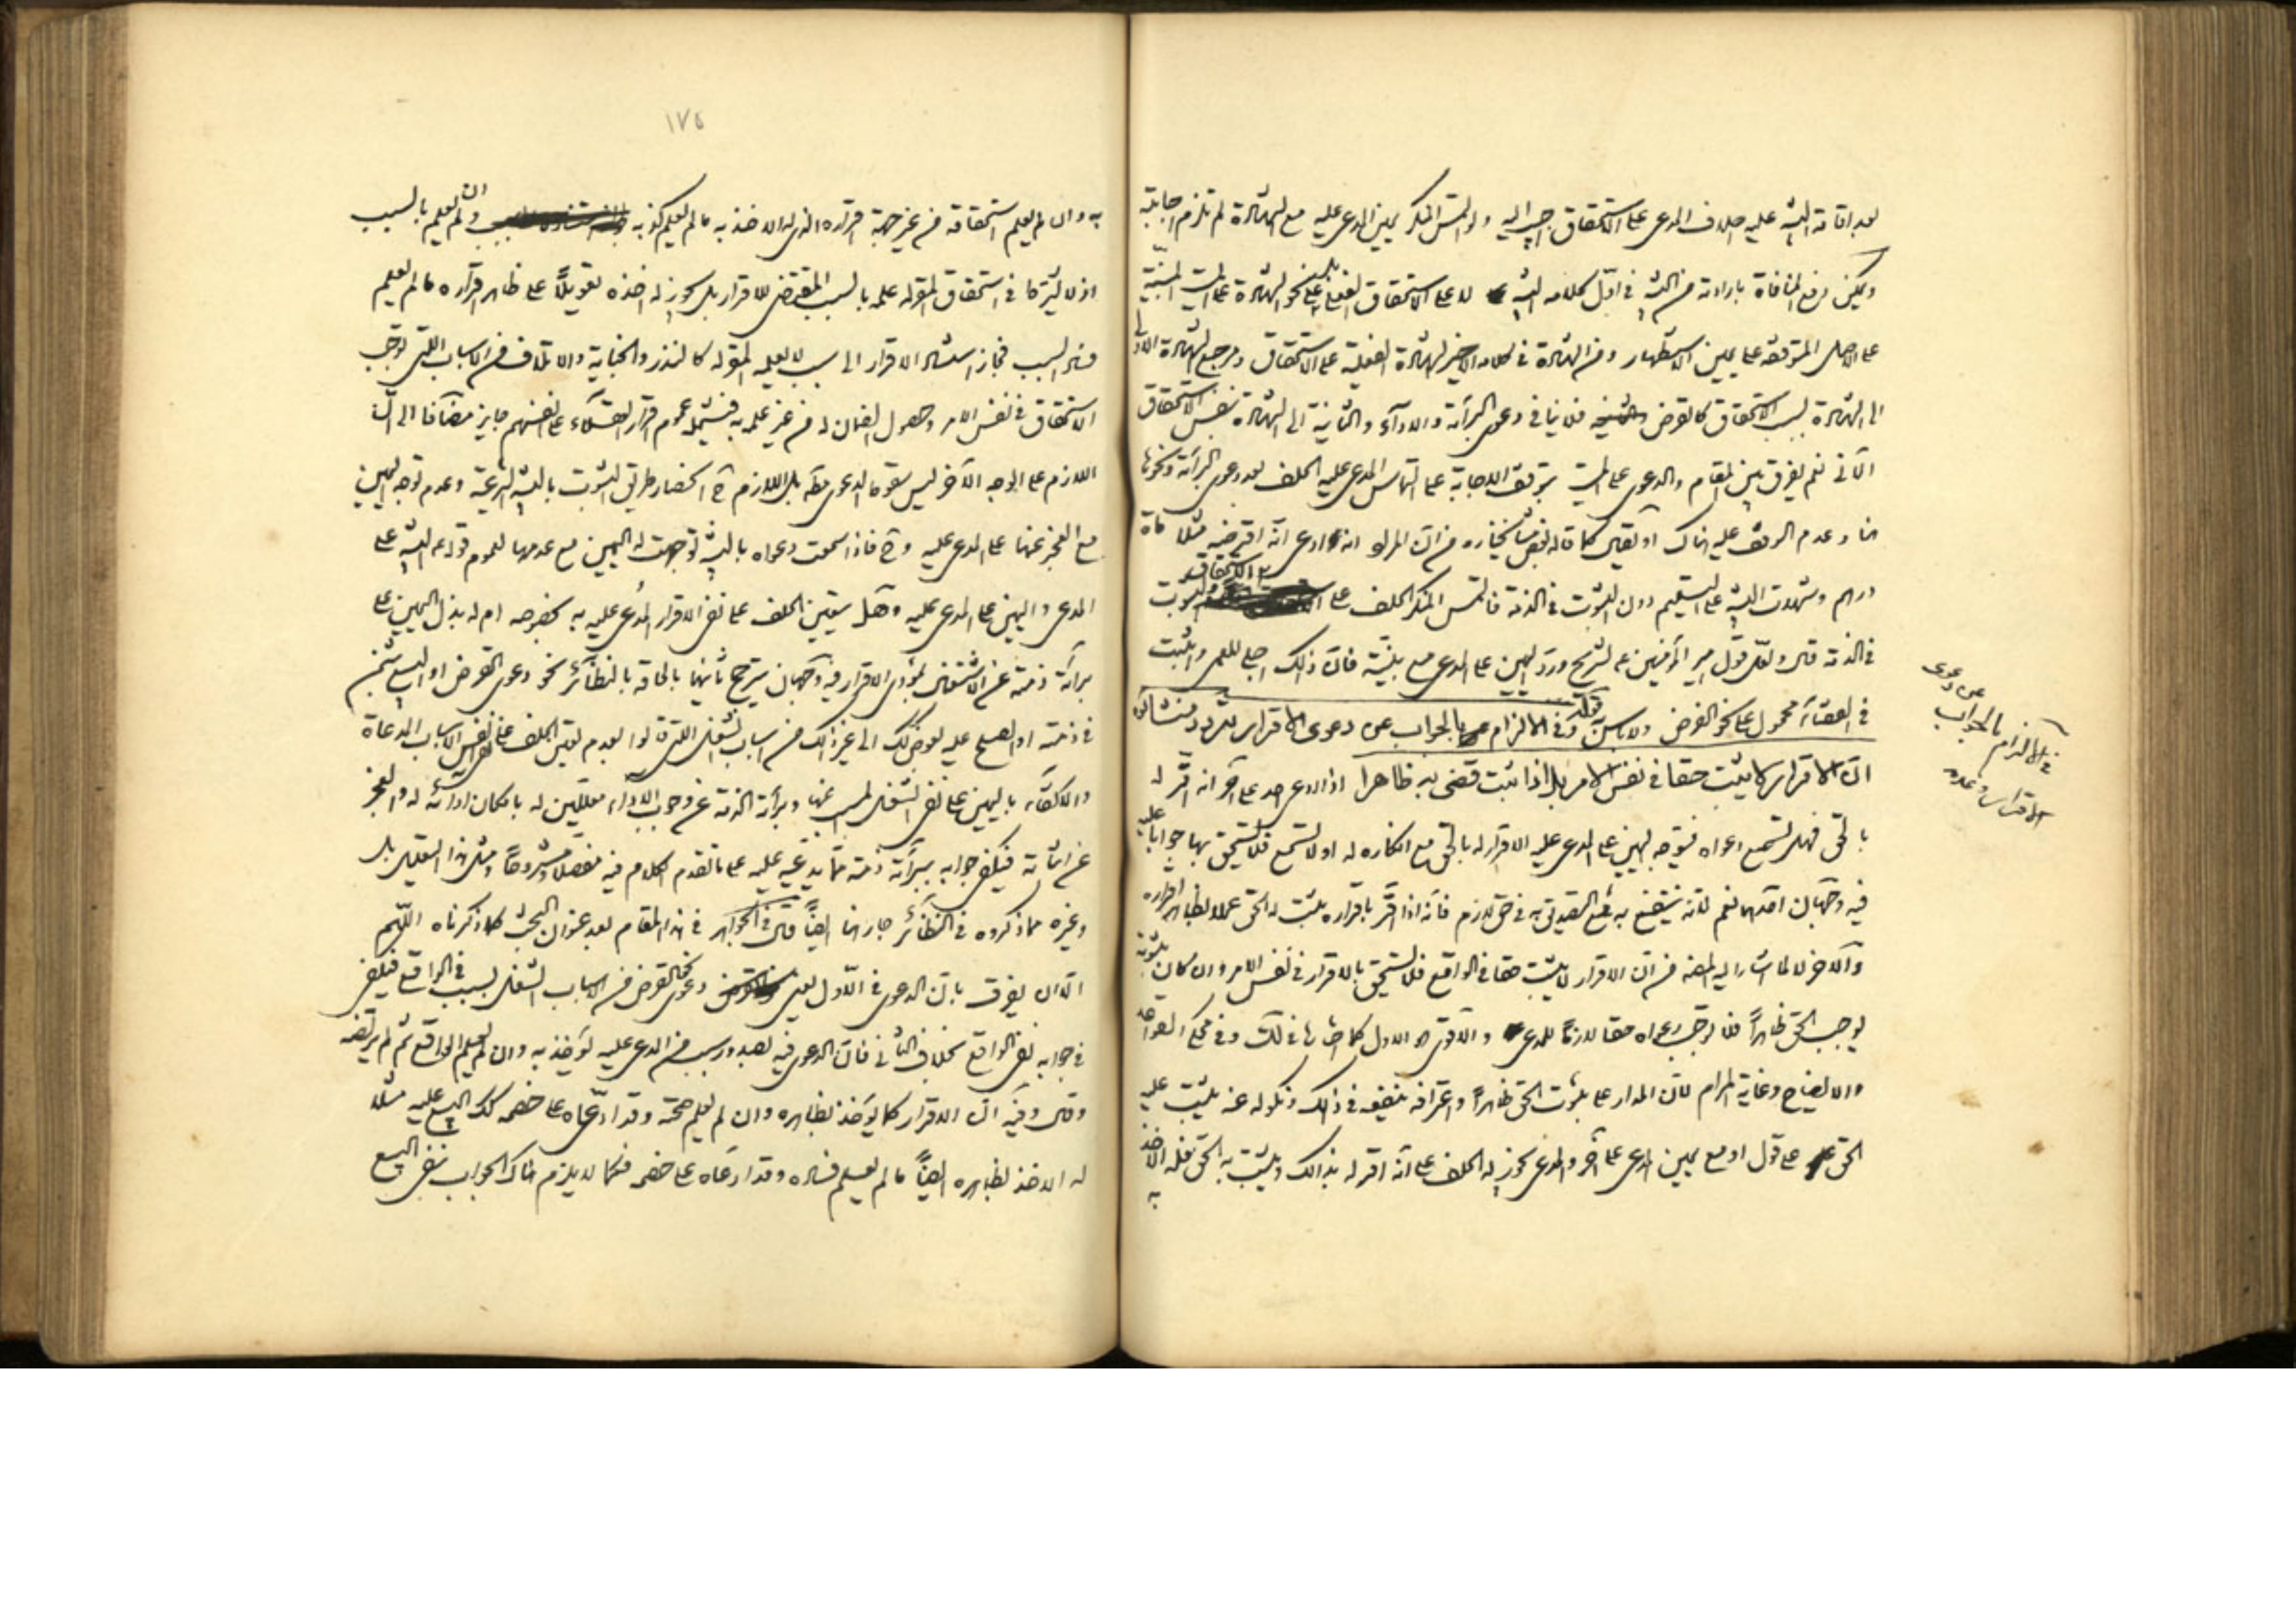 بعد اقامة البينة عليه خلاف المدعى على الاستحقاق اجيب اليه ولو التمس المنكر يمين المدعى عليه مع الشهادة لم تلزم اجابته
ويمكن رفع المنافاة بارادته من البينة في اول كلامه البينة لا على الاستحقاق الفعلى بل على نحو الشهادة على الميت المبنية
على الاصل المتوقفة على يمين الاستظهار ومن الشهادة في كلامه الاخير الشهادة الفعلية على الاستحقاق ومرجع الشهادة الاولى
الى الشهادة بسبب الاستحقاق كالقرض فلا ينافى دعوى البرائة والاداء والثانية الى الشهادة بنفس الاستحقاق
الآنى نعم يفرق بين المقام والدعوى على الميت بتوقف الاجابة على التماس المدعى عليه الحلف بعد دعوى البرائة ونحوها
هنا وعدم الوقف عليه هناك او يقال كما قاله بعض مشايخنا ره من ان المراد انه لو ادعى انه اقرضه مثلا مأة
درهم وشهدت البينة على التسليم دون الثبوت في الذمة فالتمس المنكر الحلف على الاستحقاق والثبوت
في الذمة قال ولعل قول امير المؤمنين ع لشريح ورد اليمين على المدعى مع بينته فان ذلك اجلى للعمى واثبت
في القضاء محمول على نحو الفرض ولا باس قوله وفى الالزام بالجواب عن دعوى الاقرار تردد منشاؤه
ان الاقرار لا يثبت حقا في نفس الامر بل اذا ثبت قضى به ظاهرا اذا ادعى احد على آخر انه اقر له
بالحق فهل تسمع دعواه فيتوجه اليمين على المدعى عليه الاقرار له بالحق مع انكاره له او لا تسمع فلا يستحق بها جوابا عليه
فيه وجهان احدهما نعم لانه ينتفع به مع التصديق به في حق لازم فانه اذا اقر باقراره يثبت له الحق عملا بظاهر اقراره
والآخر لا لما اشار اليه المصنف من ان الاقرار لا يثبت حقا في الواقع فلا يستحق بالاقرار في نفس الامر وان كان ثبوته
يوجب الحق ظاهرا فلا توجب دعواه حقا لازما للمدعى والاقوى هو الاول كما اختارها في لك وفى محكى القواعد
والايضاح وغاية المرام لان المدار على ثبوت الحق ظاهرا واعترافه ينفعه في ذلك ونكوله عنه يثبت عليه
الحق على قول او مع يمين المدعى على آخر والمدعى يجوز له الحلف على انه اقر له بذلك ويثبت به الحق فله الاخذ
به
في الالزام بالجواب عن دعوى
الاقرار وعدمه
١٧٥
به وان لم يعلم استحقاقه من غير جهة اقراره الذى له الاخذ به ما لم يعلم كذبه وان لم يعلم بالسبب
اذ لا يشترط في استحقاق المقر له علمه بالسبب المقتضى للاقرار بل يجوز له اخذه تعويلا على ظاهر اقراره ما لم يعلم
فساد السبب فجاز استناد الاقرار الى سبب لا يعلمه المقر له كالنذر والجناية والاتلاف من الاسباب التى توجب
الاستحقاق في نفس الامر وحصول الضمان له من غير علمه به فيشمله عموم اقرار العقلاء على انفسهم جايز مضافا الى ان
اللازم على الوجه الآخر ليس سقوط الدعوى مط بل اللازم ح انحصار طريق الثبوت بالبينة الشرعية وعدم توجه اليمين
مع العجز عنها على المدعى عليه وح فاذا سمعت دعواه بالبينة توجهت له اليمين مع عدمها لعموم قوله ع البينة على
المدعى واليمين على المدعى عليه وهل يتعين الحلف على نفى الاقرار المدعى عليه به بخصوصه ام له بذل اليمين على
برائة ذمته عن الاشتغال بمؤدى الاقرار فيه وجهان يترجح ثانيهما بالحاقه بالنظائر نحو دعوى القرض او البيع بثمن
في ذمته او الصلح عليه بعوض كك الى غير ذلك من اسباب الشغل التى قالوا بعدم تعين الحلف على نفس الاسباب المدعاة
والاكتفاء باليمين على نفى الشغل المسبب عنها وبرائة الذمة عن وجوب الاداء معللين له بامكان ادائه له والعجز
عن اثباته فيكفى جوابه ببرائة ذمته مما يدعيه عليه على ما تقدم الكلام فيه مفصلا ومشروحا ومثل هذا التعليل بل
وغيره مما ذكروه في النظائر جار هنا ايضا قال في الجواهر في هذا المقام بعد عنوان البحث كما ذكرناه اللهم
الا ان يفرق بان الدعوى في الاول يعنى دعوى القرض من الاسباب الشغل بسبب في الواقع فيكفى
في جوابه نفى الواقع بخلاف الثانى فان الدعوى فيه بصدور سبب من المدعى عليه يؤخذ به وان لم يعلم الواقع ثم لم يرتضه
وقال وفيه ان الاقرار كما يؤخذ بظاهره وان لم يعلم صحته وقد ادعاه على خصمه كك البيع عليه مثلا
له الاخذ بظاهره ايضا ما لم يعلم فساده وقد ادعاه على خصمه فكما لا يلزم هناك الجواب بنفى البيع